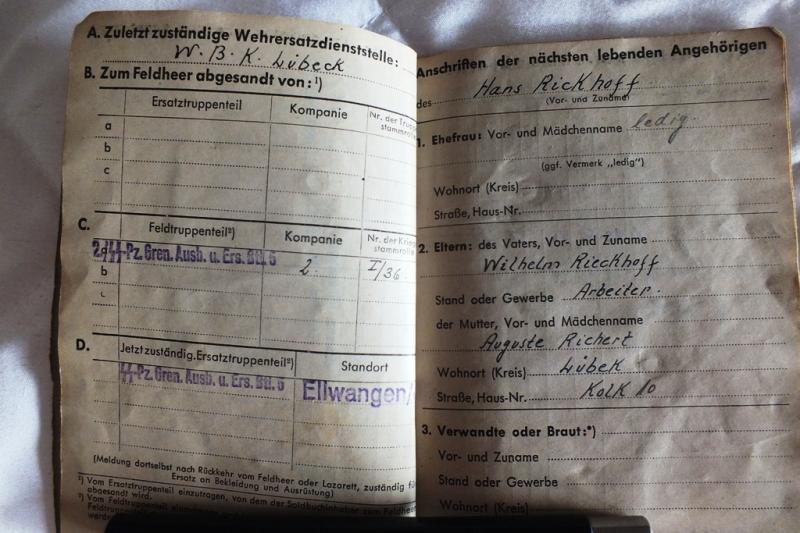 A. Zuletzt zuständige Wehrersatzdienststelle:
W. B. K. Lübeck
B. Zum Feldheer abgesandt von: ¹)
Ersatztruppenteil Kompanie Nr. der
a
b
c
C. Feldtruppenteil²) Kompanie Nr. der
2./SS-Pz. Gren. Ausb. u. Ers. Btl. 5 2. I/36
b
c
D. Jetzt zuständig. Ersatztruppenteil²) Standort
SS-Pz. Gren. Ausb. u. Ers. Btl. 5 Ellwangen/
(Meldung dortselbst nach Rückkehr vom Feldheer oder Lazarett, zuständig
Ersatz an Bekleidung und Ausrüstung)
¹) Vom Ersatztruppenteil einzutragen, von dem der Soldbuchinhaber zum Feldheer
abgesandt wird.
²) Vom Feldtruppenteil
Anschriften der nächsten lebenden Angehörigen
des Hans Rickhoff
(Vor- und Zuname)
1. Ehefrau: Vor- und Mädchenname ledig.
(ggf. Vermerk „ledig")
Wohnort (Kreis)
Straße, Haus-Nr.
2. Eltern: des Vaters, Vor- und Zuname
Wilhelm Rieckhoff
Stand oder Gewerbe Arbeiter.
der Mutter, Vor- und Mädchenname
Auguste Richert
Wohnort (Kreis) Lübek
Straße, Haus-Nr. Kolk 10
3. Verwandte oder Braut:*)
Vor- und Zuname
Stand oder Gewerbe
Wohnort (Kreis)